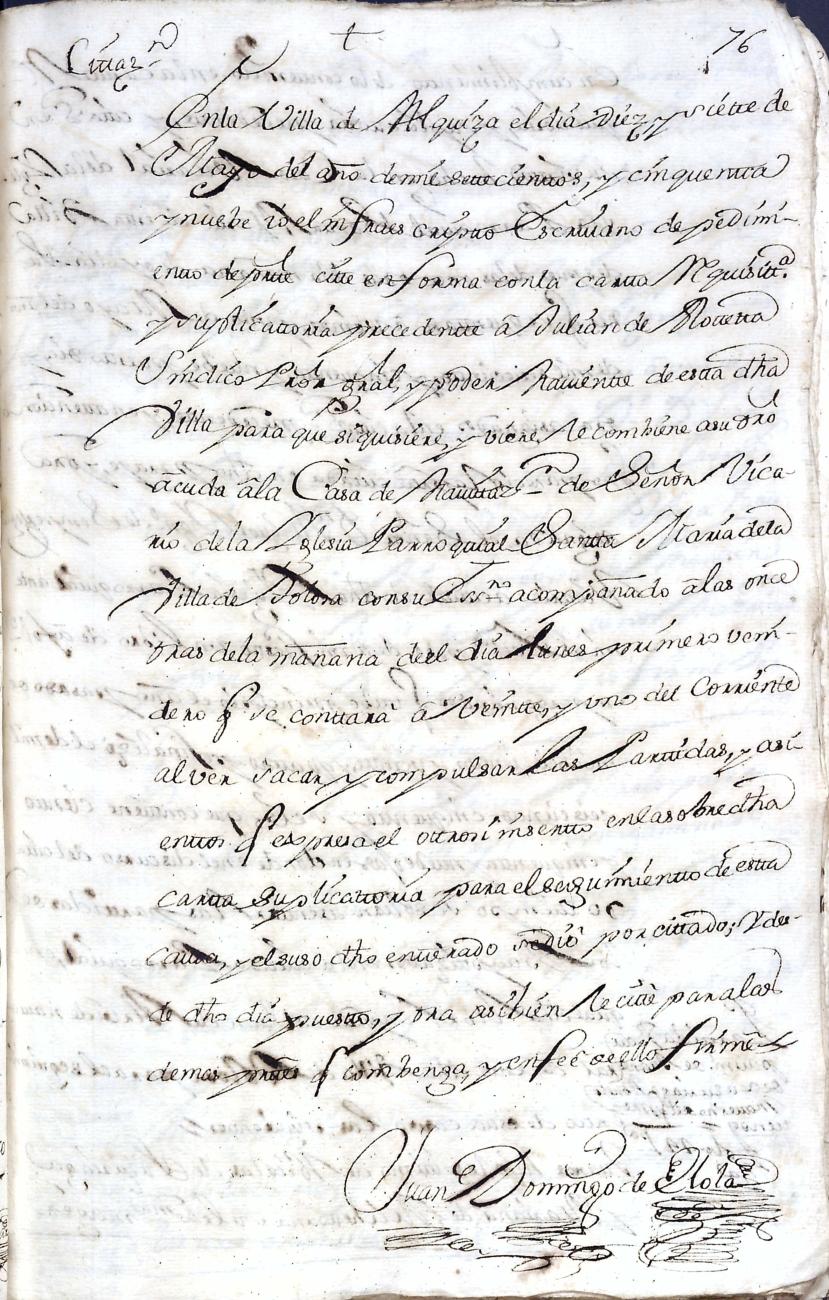 76
Cittazn
Enla Villa de Alquiza el dia Diez, y siette de
Mayo del año demil settecienttos, y cinquentta
y nuebe io el infraescriptto Escrivano de pedimi-
entto de partte citte en forma conla cartta Requisitta
y suplicattoria precedentte â Julian de
Sindico Pror gral, y poder haviente de estta dha
Villa para que si quisiere, y viere, le combiene asu dro
acuda âla Casa de havittazn de Señor Vica-
rio dela Yglesia Parroquial Santta Maria dela
Villa de Tolosa consu Essno acompañado âlas once
oras dela mañana deel dia lunes primero veni-
dero q se conttara â Veintte, y uno del Corriente
al ver sacar, y compulsar las Parttidas, y asi-
enttos q expresa el ottrosi insertto enla sobredha
cartta Suplicattoria para el seguimientto de estta
causa, y el suso dho entterado se diô por cittado; Y des-
de dho dia puestto, y ora asibien le cittè para las
demas parttes q combenga, y enfee de ello firmè
Juan Domingo de